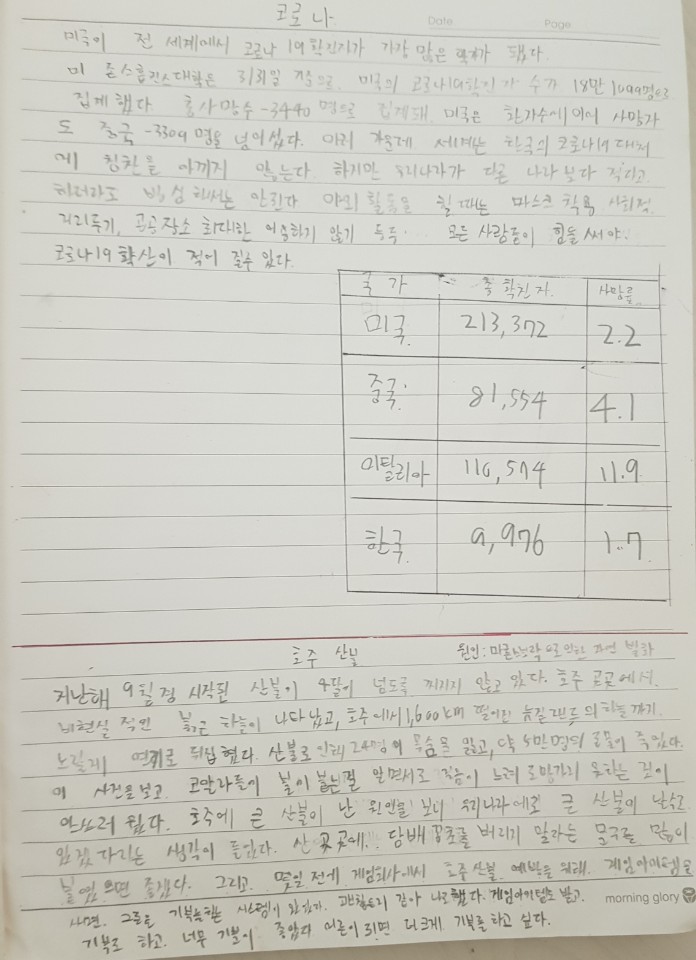 코로나
Date Page
미국이 전 세계에서 코로나 19 확진자가 가장 많은 국가가 됐다.
미 존스홉킨스대학은 3/31일 기준으로 미국의 코로나19확진자 수가 18만 명으로
집계했다 총사망수 -3440명으로 집계돼 미국은 확진수에 이어 사망자
도 중국 -3309명을 넘어섰다. 이러 가운데 세계는 한국의 코로나19 대처
에 칭찬을 아끼지 않는다. 하지만 우리나라가 다른 나라보다 적다고
하더라도 방심해서는 안된다 야외 활동을 할 때는 마스크 착용 사회적
거리두기, 공공장소 최대한 이용하기 않기 등등... 모든 사람들이 힘을 써야.
코로나19 확산이 적어 질수 있다.
국가 총 확진자. 사망률
미국. 213,372 2.2
중국. 81,554 4.1
이탈리아 110,574 11.9
한국. 9,976 1.7
호주 산불 원인: 마른 으로 인한 자연 발화
지난해 9월경 시작된 산불이 4달이 넘도록 꺼지지 않고 있다. 호주 곳곳에서.
비현실 적인 붉은 하늘이 나타났고, 호주에서 1,600km 떨어진 뉴질랜드의 하늘까지.
노랗게 연기로 뒤덮혔다. 산불로 인해 24명이 목숨을 잃고, 약 5만명의 동물이 죽었다.
이 사건을 보고. 코알라들이 불이 붙는걸 알면서도 걸음이 느려 도망가지 못하는 것이
안쓰러 웠다. 호주에 큰 산불이 난 원인을 보니 우리나라에도 큰 산불이 날수도
있겠다라는 생각이 들었다. 산 곳곳에 담배꽁초를 버리기 말라는 문구를 많이
붙였으면 좋겠다. 그리고. 몇일 전에 게임회사에서 호주산불. 예방을 위해. 게임아이템을
사면. 그돈을 기부를하는 시스템이 있었다. 괜찮으거 같아 나도했다. 게임아이템도 받고.
기부도 하고. 너무 기분이 좋았다 어른이 되면 더 크게 기부를 하고 싶다.
morning glory